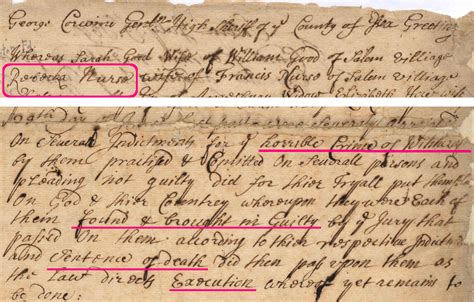 George Corwine Gentlm High Sheriff of ye County of Essex Greeting
Whereas Sarah Good Wife of William Good of Salem Villiage
Rebecka Nurse wife of Francis Nurse of Salem Villiage
Widow Elizabeth How wife
On Severall Indictments for ye horrible Crime of Witchcraft
by them practised & Comitted On Severall persons and
pleading not guilty did for thier Tryall put themselves
On God & thier Countrey whereupon they were Each of
them found & brought in Guilty by ye Jury that
passed On them according to thier respective Indictmts
and Sentence of death did then pass upon them as
the Law directs Execution whereof yet remains to
be done: